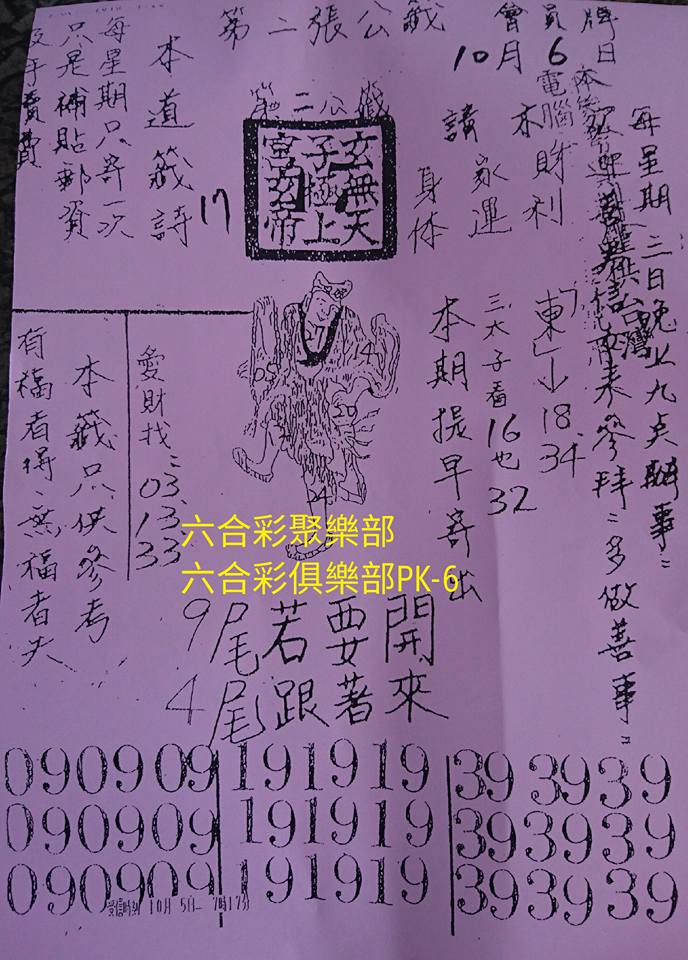 第二張公籤
會員牌
10月6日
第二公籤
玄天上帝
無極玄
子宮
每星期三日晚上九点辦事:
來參拜:多做善事:
電腦
本財利
請家運
身体
「東」↓18.34
三太子看16也32
本期提早寄出
本道籤詩
17
每星期只寄一次
只是補貼郵資
及手續費
05
14
20
24
愛財找:03.13.33
本籤只供參考
有福者得、無福者失
六合彩聚樂部
六合彩俱樂部PK-6
9尾若要開
4尾跟著來
09090909 191919 393939
090909 191919 393939
090909 191919 393939
10月 5日 7時17分